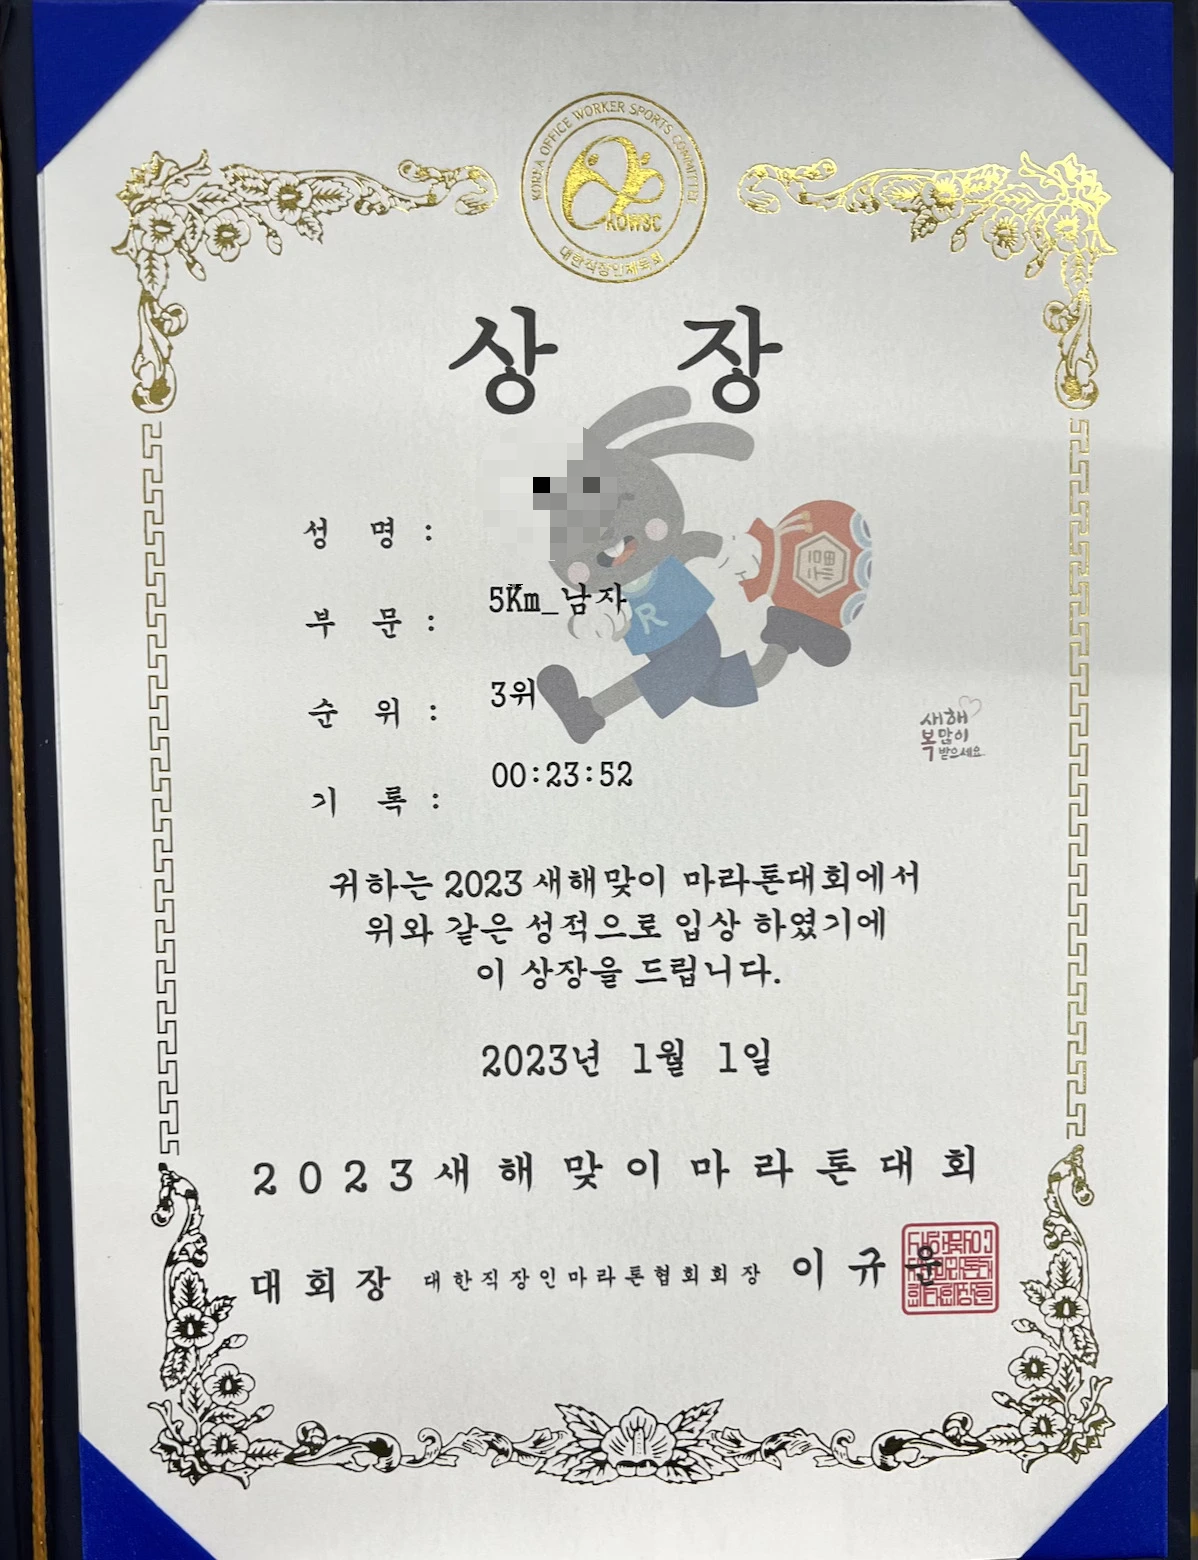 KOREA OFFICE WORKER SPORTS COMMITTEE
KOWSC
대한직장인체육회
상 장
성 명 :
부 문 : 5Km_남자
순 위 : 3위
기 록 : 00:23:52
福
R
새해
복 많이
받으세요
귀하는 2023 새해맞이 마라톤대회에서
위와 같은 성적으로 입상 하였기에
이 상장을 드립니다.
2023년 1월 1일
2023새해맞이마라톤대회
대회장 대한직장인마라톤협회회장 이규운